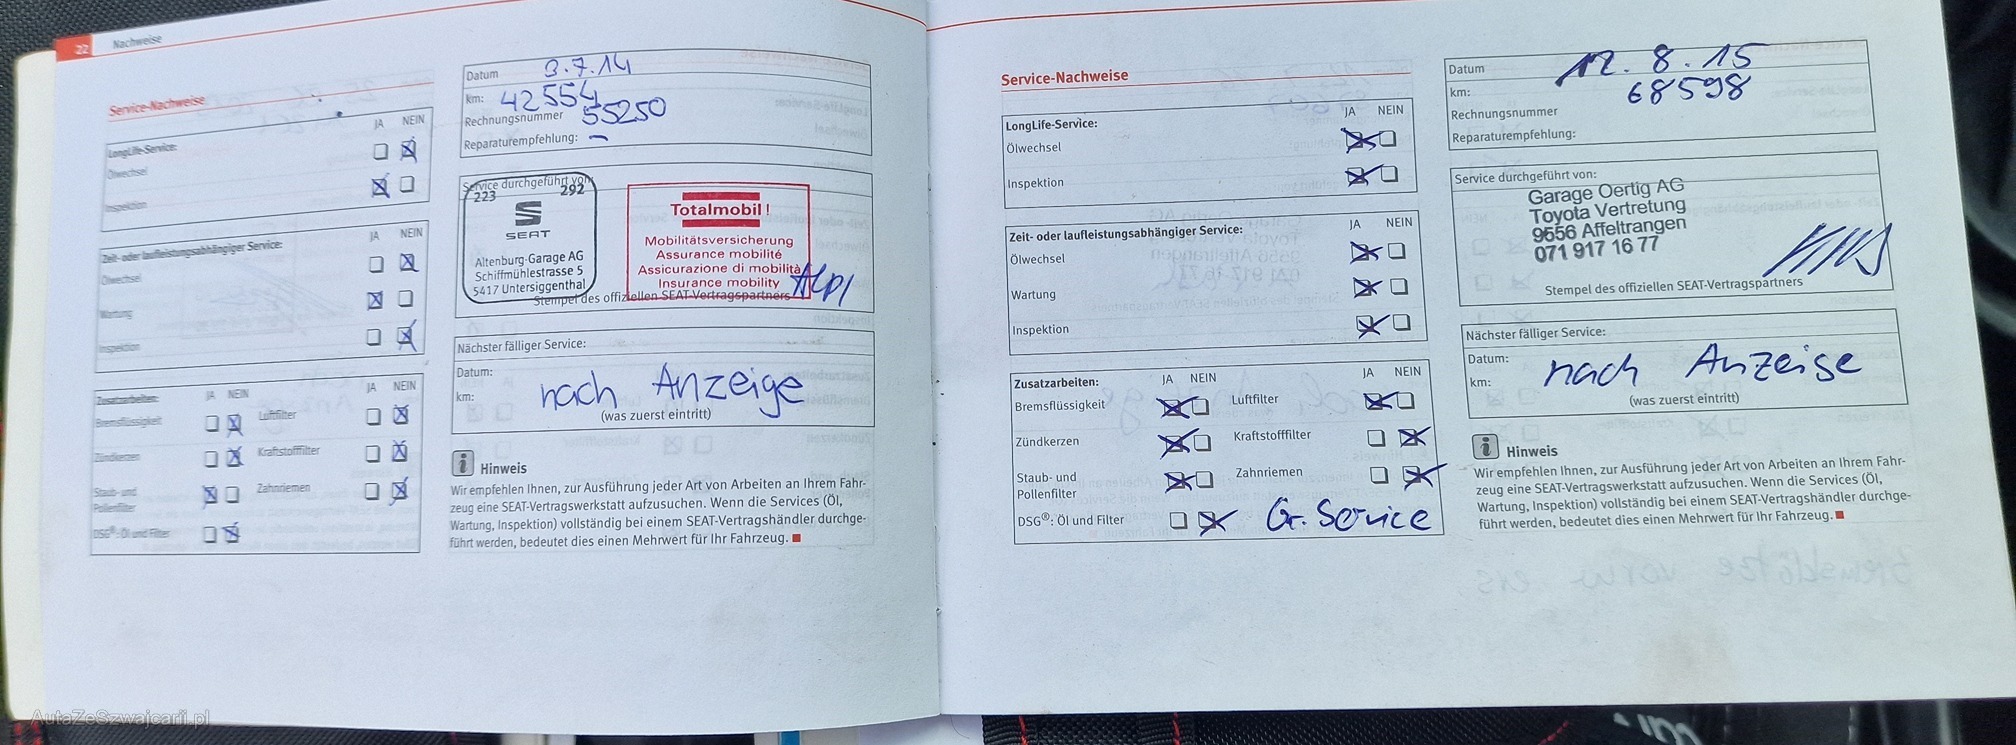 22 Nachweise
Service-Nachweise
JA NEIN
LongLife-Service:
Ölwechsel
Inspektion
JA NEIN
Zeit- oder laufleistungsabhängiger Service:
Ölwechsel
Wartung
Inspektion
Zusatzarbeiten: JA NEIN JA NEIN
Bremsflüssigkeit Luftfilter
Zündkerzen Kraftstofffilter
Staub- und Zahnriemen
Pollenfilter
DSG®: Öl und Filter
Datum 3.7.14
km: 42554
Rechnungsnummer 55250
Reparaturempfehlung: –
Service durchgeführt von:
223 292
SEAT
Altenburg-Garage AG
Schiffmühlestrasse 5
5417 Untersiggenthal
Totalmobil!
Mobilitätsversicherung
Assurance mobilité
Assicurazione di mobilità
Insurance mobility
Stempel des offiziellen SEAT-Vertragspartners
Nächster fälliger Service:
Datum:
km: nach Anzeige
(was zuerst eintritt)
Hinweis
Wir empfehlen Ihnen, zur Ausführung jeder Art von Arbeiten an Ihrem Fahr-
zeug eine SEAT-Vertragswerkstatt aufzusuchen. Wenn die Services (Öl,
Wartung, Inspektion) vollständig bei einem SEAT-Vertragshändler durchge-
führt werden, bedeutet dies einen Mehrwert für Ihr Fahrzeug.
Service-Nachweise
JA NEIN
LongLife-Service:
Ölwechsel
Inspektion
JA NEIN
Zeit- oder laufleistungsabhängiger Service:
Ölwechsel
Wartung
Inspektion
Zusatzarbeiten: JA NEIN JA NEIN
Bremsflüssigkeit Luftfilter
Zündkerzen Kraftstofffilter
Staub- und Zahnriemen
Pollenfilter
DSG®: Öl und Filter Gr. Service
Datum 12.8.15
km: 68598
Rechnungsnummer
Reparaturempfehlung:
Service durchgeführt von:
Garage Oertig AG
Toyota Vertretung
9556 Affeltrangen
071 917 16 77
Stempel des offiziellen SEAT-Vertragspartners
Nächster fälliger Service:
Datum:
km: nach Anzeige
(was zuerst eintritt)
Hinweis
Wir empfehlen Ihnen, zur Ausführung jeder Art von Arbeiten an Ihrem Fahr-
zeug eine SEAT-Vertragswerkstatt aufzusuchen. Wenn die Services (Öl,
Wartung, Inspektion) vollständig bei einem SEAT-Vertragshändler durchge-
führt werden, bedeutet dies einen Mehrwert für Ihr Fahrzeug.
AutaZeSzwajcarii.pl